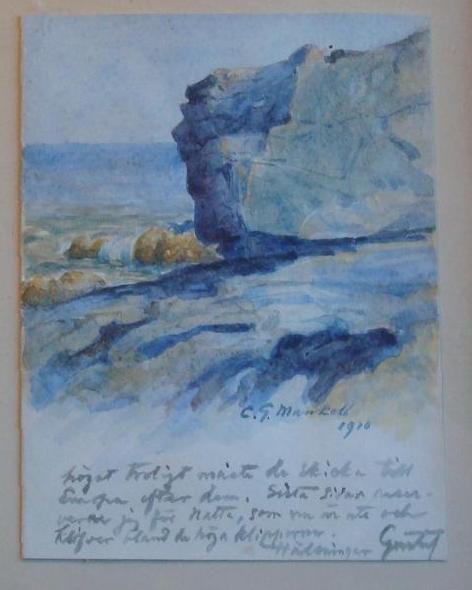 C. G. Mankell
1910
högst troligt måste de skicka till
Europa efter dem. Sista
jag för Natta, som nu är ute och
klifver bland de höga klipporna.
Hälsningar Gustaf